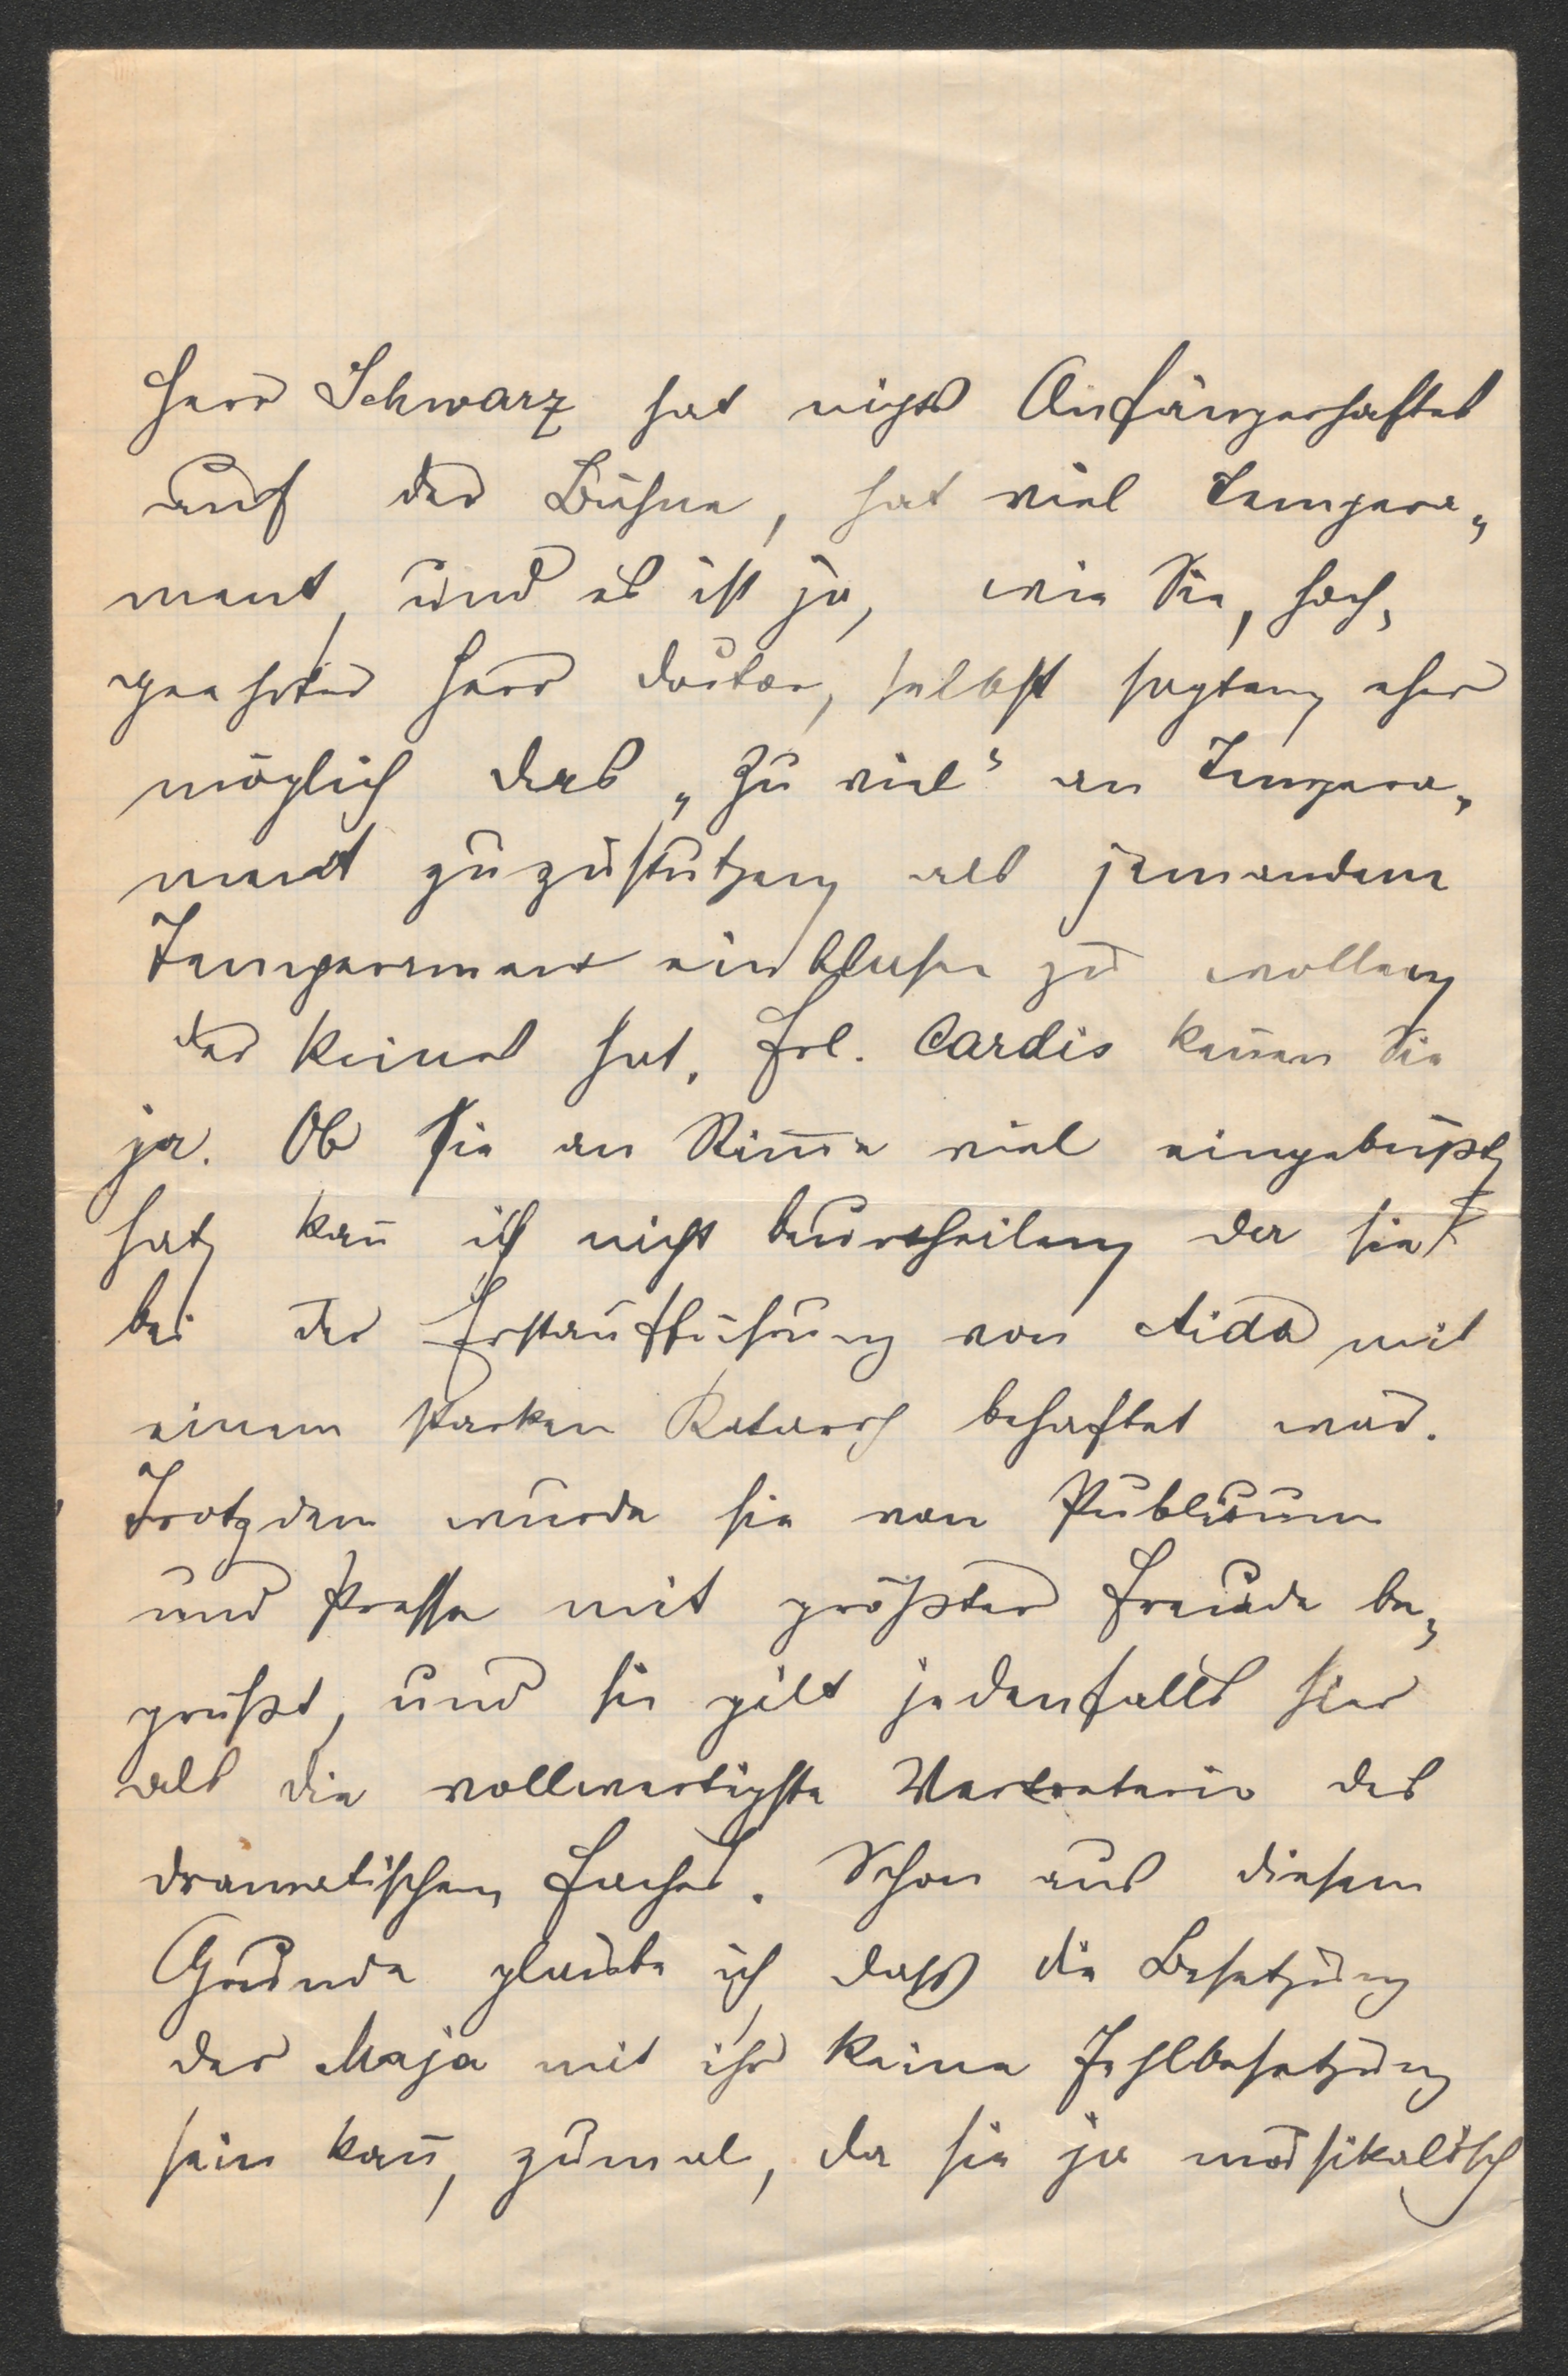 Herr Schwarz hat nichts Anfängerhaftes
auf der Bühne, hat viel Tempera„
ment, und es ist ja, wie Sie, hoch„
geehrter Herr Doctor, selbst sagten, eher
möglich das „Zu viel“ an Tempera„
ment zuzustutzen, als jemandem
Temperament einblasen zu wollen,
der keines hat. Frl. Cardis kennen Sie
ja. Ob sie an Stim̄e viel eingebüßt,
hat, kan̄ ich nicht beurtheilen, da sie
bei der Erstaufführung von Aida mit
einem starken Katarrh behaftet war.
Trotzdem wurde sie von Publicum
und Presse mit größter Freude be„
grüßt, und sie gilt jedenfalls hier
als die vollwertigste Vertreterin des
dramatischen Faches. Schon aus diesem
Grunde glaube ich, dass die Besetzung
der Maja mit ihr keine Fehlbesetzung
sein kan̄, zumal, da sie ja musikalisch